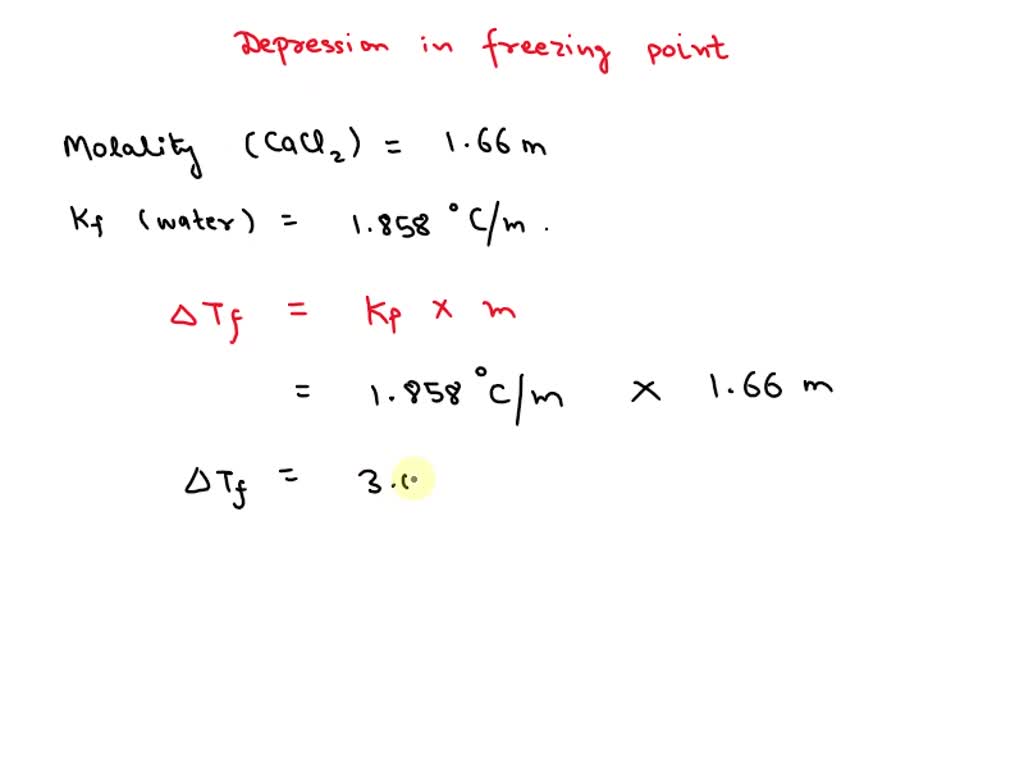 Depression in freezing point
Molality (CaCl₂) = 1.66 m
Kf (water) = 1.858 °C/m .
ΔTf = Kf × m
= 1.858 °C/m × 1.66 m
ΔTf = 3.